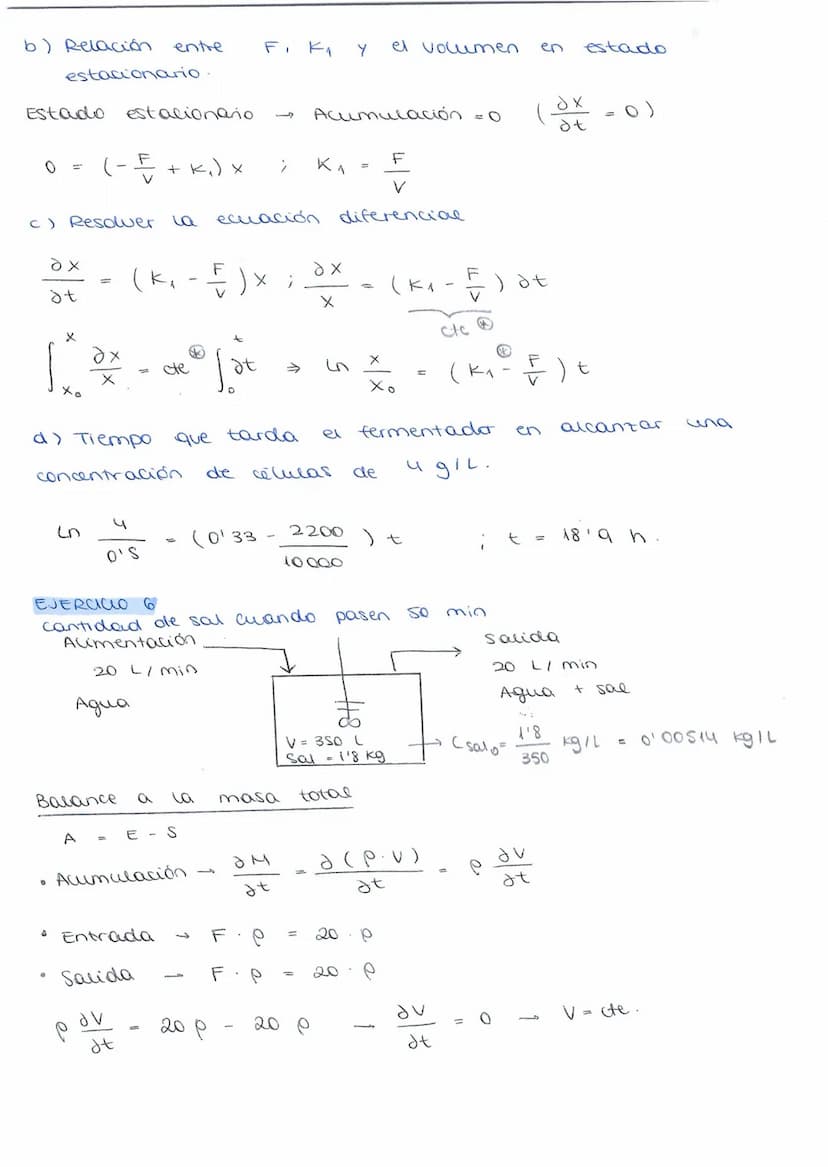 b) Relación entre F, K₁ y el volumen en estado
estacionario.
Estado estacionario → Acumulación = 0 (∂x/∂t = 0)
0 = (- F/V + K₁) x ; K₁ = F/V
c) Resolver la ecuación diferencial
∂x/∂t = (K₁ - F/V) x ; ∂x/x = (K₁ - F/V) ∂t
cte ⊛
∫ₓ₀ˣ ∂x/x = cte ⊛ ∫₀ᵗ ∂t ⇒ Ln x/x₀ = (K₁ - F/V) ⊛ t
d) Tiempo que tarda el fermentador en alcanzar una
concentración de células de 4 g/L.
Ln 4/0'5 = (0'33 - 2200/10000) t ; t = 18'9 h.
EJERCICIO 6
cantidad de sal cuando pasen 50 min
Alimentación
20 L/min
Agua
Salida
20 L/min
Agua + sal
V = 350 L
Sal = 1'8 kg
→ Csal₀ = 1'8/350 kg/L = 0'00514 kg/L
Balance a la masa total
A = E - S
• Acumulación → ∂M/∂t = ∂(ρ·V)/∂t = ρ ∂V/∂t
• Entrada → F · ρ = 20 · ρ
• Salida — F · ρ = 20 · ρ
ρ ∂V/∂t = 20 ρ - 20 ρ — ∂V/∂t = 0 → V = cte.